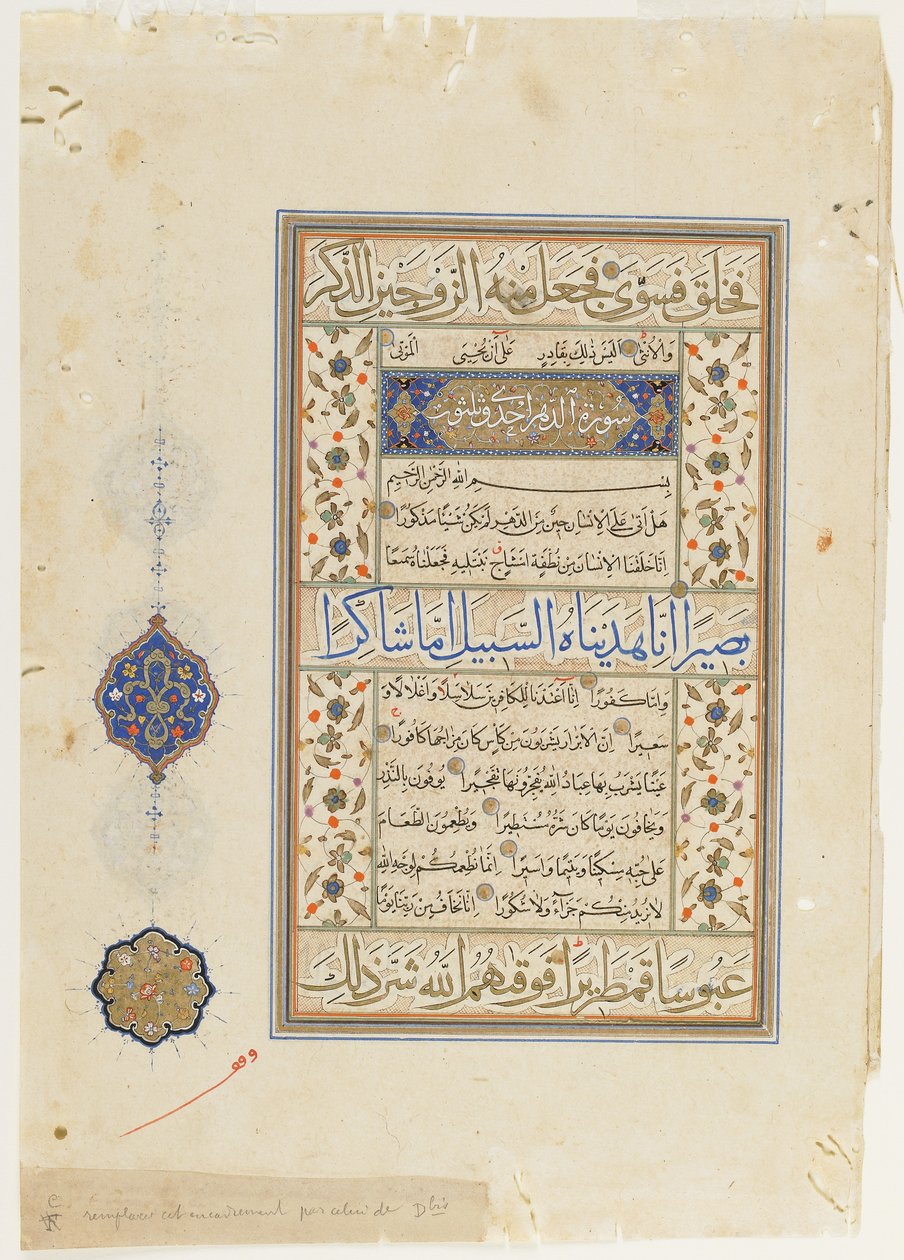 فَخَلَقَ فَسَوَّىٰ فَجَعَلَ مِنْهُ الزَّوْجَيْنِ الذَّكَرَ
وَالْأُنْثَىٰ اَلَيْسَ ذٰلِكَ بِقَادِرٍ عَلٰٓى اَنْ يُحْيِىَ الْمَوْتىٰ
سورة الدهر احدى وثلثون
بِسْمِ اللهِ الرَّحْمٰنِ الرَّحِيمِ
هَلْ اَتىٰ عَلَى الْاِنْسَانِ حِينٌ مِنَ الدَّهْرِ لَمْ يَكُنْ شَيْئًا مَذْكُورًا
اِنَّا خَلَقْنَا الْاِنْسَانَ مِنْ نُطْفَةٍ اَمْشَاجٍ نَبْتَلِيهِ فَجَعَلْنَاهُ سَمِيعًا
بَصِيرًا اِنَّا هَدَيْنَاهُ السَّبِيلَ اِمَّا شَاكِرًا
وَاِمَّا كَفُورًا اِنَّآ اَعْتَدْنَا لِلْكَافِرِينَ سَلَاسِلًا وَاَغْلَالًا وَ
سَعِيرًا اِنَّ الْاَبْرَارَ يَشْرَبُونَ مِنْ كَأْسٍ كَانَ مِزَاجُهَا كَافُورًا
عَيْنًا يَشْرَبُ بِهَا عِبَادُ اللهِ يُفَجِّرُونَهَا تَفْجِيرًا يُوفُونَ بِالنَّذْرِ
وَيَخَافُونَ يَوْمًا كَانَ شَرُّهُ مُسْتَطِيرًا وَيُطْعِمُونَ الطَّعَامَ
عَلىٰ حُبِّهِ مِسْكِينًا وَيَتِيمًا وَاَسِيرًا اِنَّمَا نُطْعِمُكُمْ لِوَجْهِ اللهِ
لَا نُرِيدُ مِنْكُمْ جَزَآءً وَلَا شُكُورًا اِنَّا نَخَافُ مِنْ رَبِّنَا يَوْمًا
عَبُوسًا قَمْطَرِيرًا فَوَقٰهُمُ اللهُ شَرَّ ذٰلِكَ
وقف
remplacer cet encadrement par celui de D bis